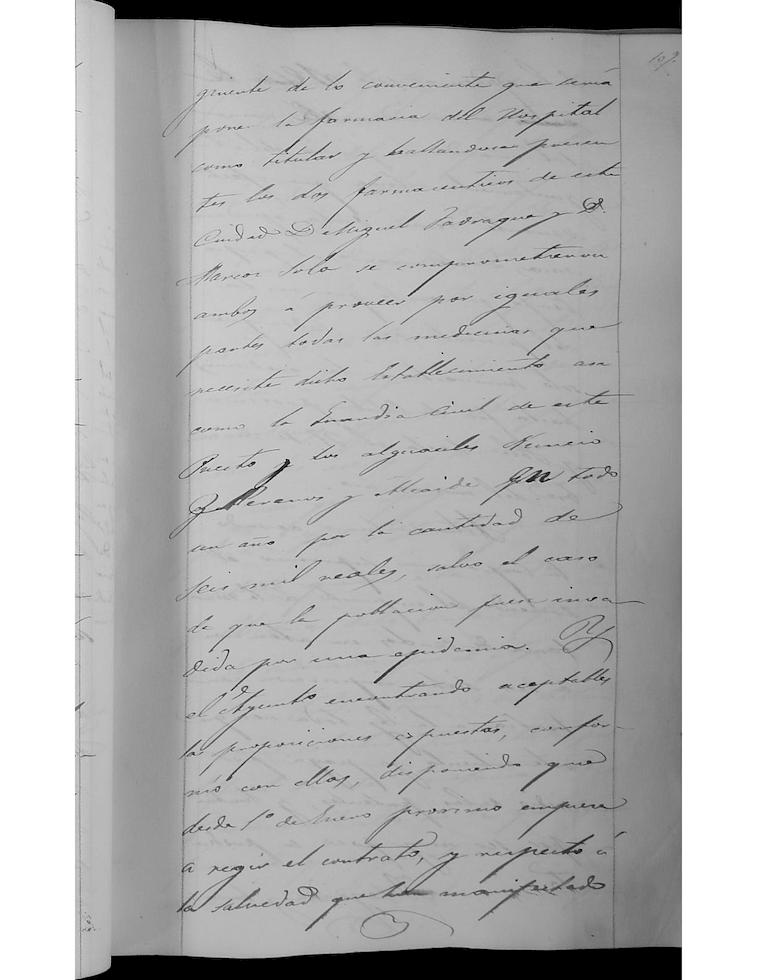 109.
guiente de lo conveniente que seria
poner la farmacia del Hospital
como titular y hallandose presen
tes los dos farmaceuticos de esta
Ciudad D. Miguel Jadraque y D.
Marcos Solo se comprometieron
ambos á proveer por iguales
partes todas las medicinas que
necesite dicho Establecimiento asi
como la Guardia Civil de este
Puesto y los alguaciles Nuncio
y Alcaide en todo
un año por la cantidad de
seis mil reales, salvo el caso
de que la poblacion fuese inva
dida por una epidemia. Y
el Ayunto encontrando aceptables
las proposiciones expuestas, confor-
mó con ellas, disponiendo que
desde 1º de Enero proximo empiece
a regir el contrato, y respecto á
la salvedad que han manifestado